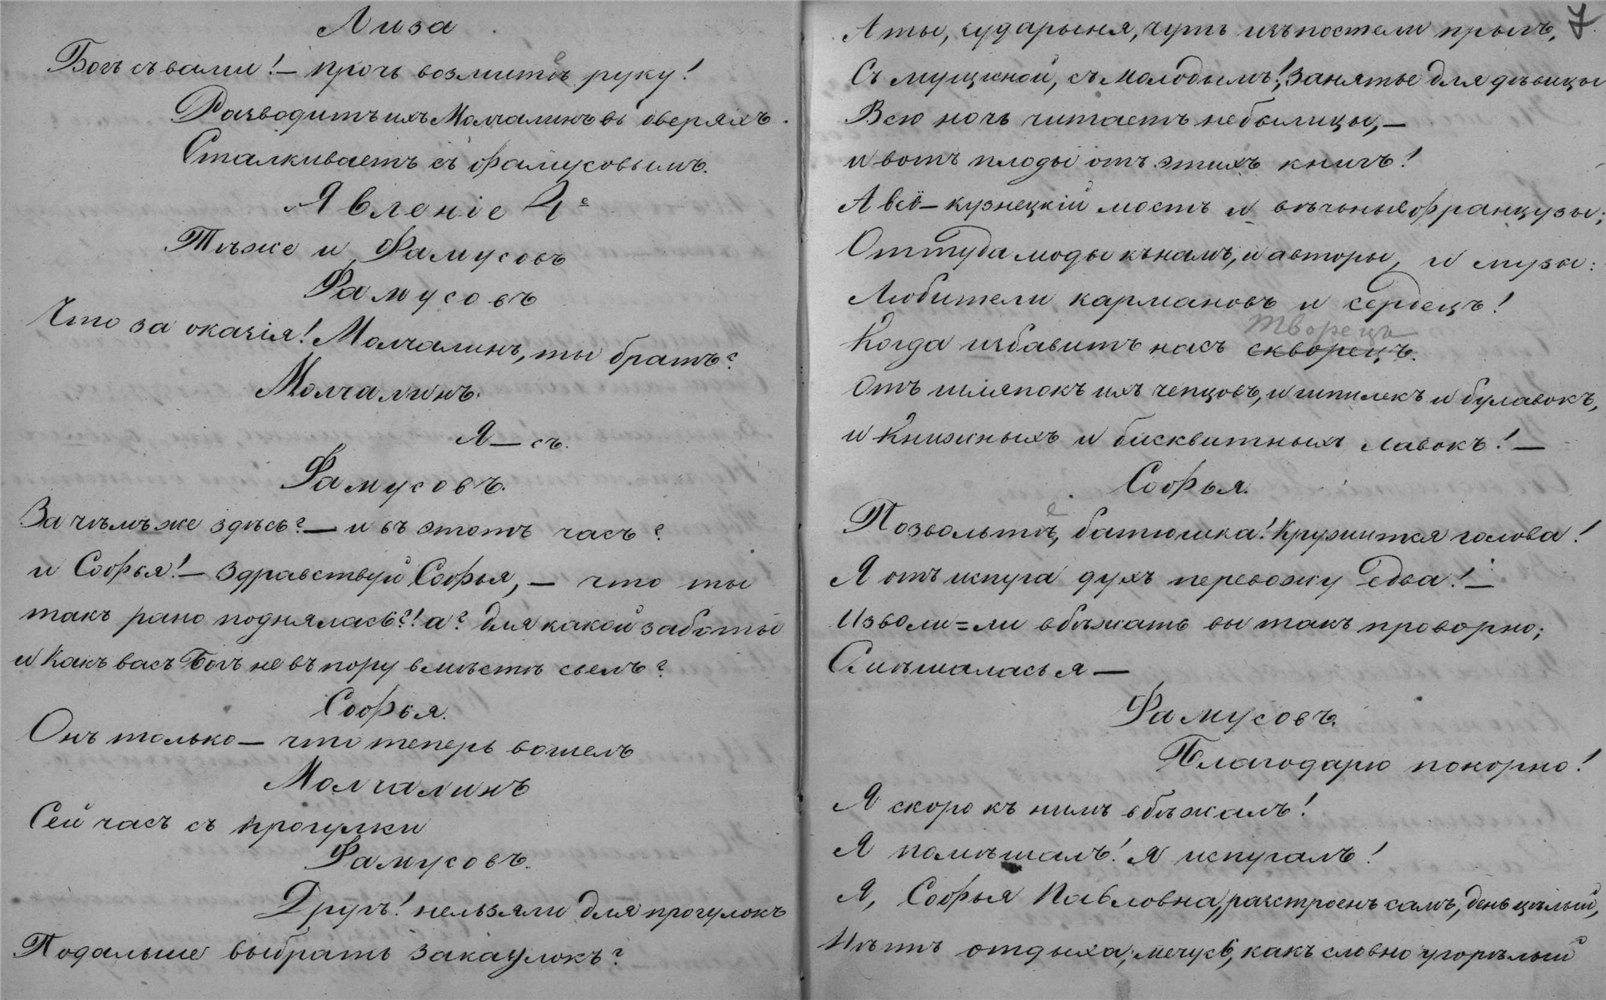 Лиза.
Богъ съ вами! — прочь возмитѣ руку!
Разводитъ ихъ Молчалинъ въ дверяхъ.
Сталкиваетъ съ Фамусовымъ.
Явленіе 4е
Тѣже и Фамусовъ
Фамусовъ
Что за оказія! Молчалинъ, ты братъ?
Молчалинъ.
Я — съ.
Фамусовъ.
Зачѣмъ же здѣсь? — и въ этотъ часъ?
и Софья! — здравствуй Софья, — что ты
такъ рано поднялась?! а? для какой заботы
и какъ васъ Богъ не въ пору вмѣстѣ свелъ?
Софья.
Онъ только — что теперь вошелъ
Молчалинъ
Сей часъ съ прогулки
Фамусовъ.
Другъ! нельзяли для прогулокъ
Подальше выбрать закаулокъ?
7
А ты, сударыня, чуть изъ постели прыгъ,
Съ мущиной, съ молодымъ! Занятье для дѣвицы
Всю ночь читаетъ небылицы, —
и вотъ плоды отъ этихъ книгъ!
А всё — кузнецкій мостъ и вѣчныя французы;
Оттуда моды къ намъ, и авторы, и музы:
Любители кармановъ и сердецъ!
творецъ
Когда избавитъ насъ скворецъ.
Отъ шляпокъ ихъ чепцовъ, и шпилекъ и булавокъ,
и книжныхъ и бисквитныхъ лавокъ! —
Софья.
Позвольтѣ, батюшка! Кружится голова!
Я отъ испуга духъ перевожу едва! —
Изволи=ли вбѣжать вы такъ проворно;
Смѣшалась я —
Фамусовъ.
Благодарю покорно!
Я скоро къ нимъ вбѣжалъ!
Я помѣшалъ! Я испугалъ!
Я, Софья Павловна, разстроенъ самъ, день цѣлый,
Нѣтъ отдыха; мечусь, какъ словно угорѣлый